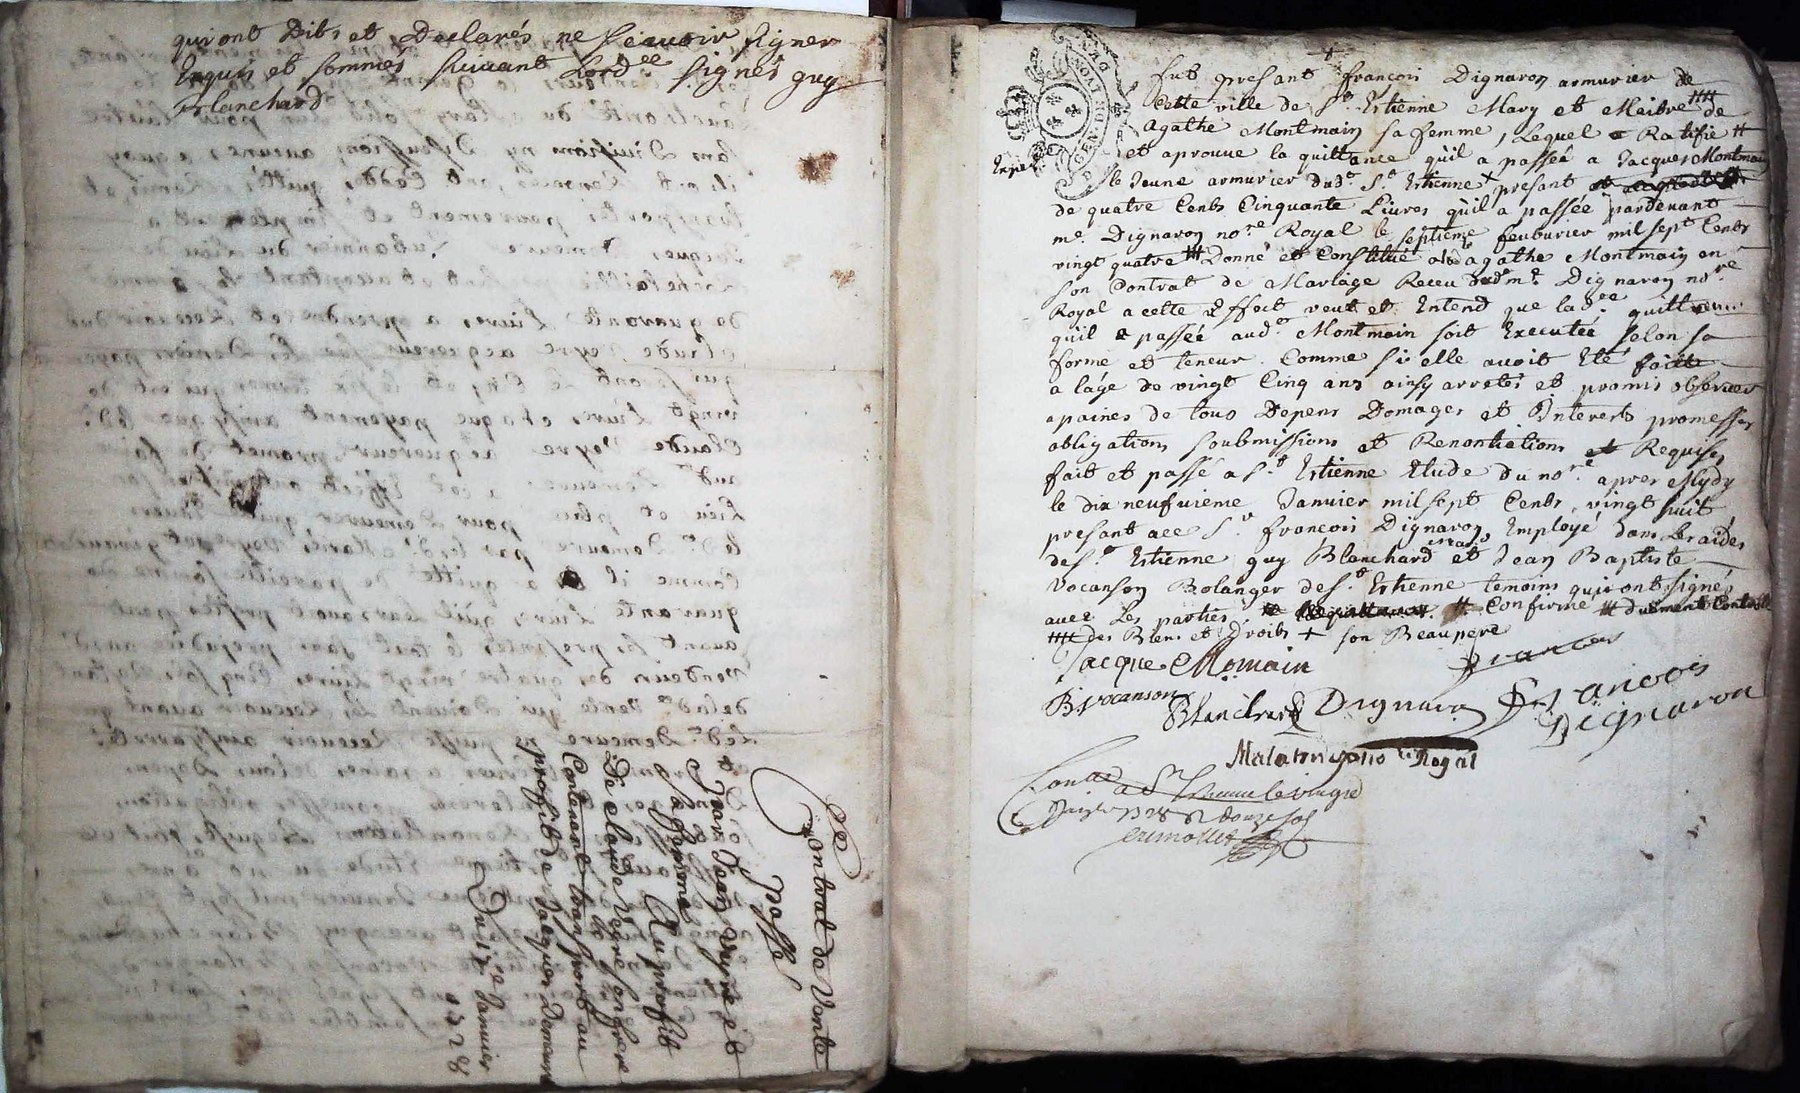 qui ont Dits et Declarés ne scavoir signer
Enquis et sommés suivant Lord.ce signés guy
Blanchard
Contrat de Vente
passé
par Jean Veyre et
sa femme
Au proffit
De claude Veyre son frere
Contenant transport au
proffit de Jacques Demeure
Du 17e Janvier
1728
GEN DE LYON
Exp.ée
fut presant françois Dignaron armurier de
cette ville de St. Estienne Mary et Maitre #### de
Agathe Montmain sa femme, Lequel a Ratifie #
et aprouve la quittance qu'il a passée a Jacques Montmain
le Jeune armurier dud.t St. Estienne + presant
de quatre Cents Cinquante Livres qu'il a passée pardevant
me. Dignaron no.re Royal le septieme feuburier mil sept Cents
vingt quatre ### Donné et Constitué a lad agathe Montmain en
son Contrat de Mariage Receu dud. me. Dignaron no.re
Royal a cette Effect veut et Entend que lad.ee quittance
qu'il a passée aud.t Montmain soit Executée selon sa
forme et teneur. Comme si elle avoit Eté faitte
a lâge de vingt Cinq ans ainsy arretés et promis observer
apaines de tous Depens Domages et Interests promesses
obligations soubmissions et Renontiations et Requises
fait et passé a St. Estienne Etude du no.re apres Mydy
le dix neufvieme Janvier mil sept Cents vingt huit
presant ace Sr. françois Dignaron Employé dans Les aides
de St. Estienne guy Blanchard et Jean Baptiste
Vocanson Bolanger de St. Estienne temoins qui ont signés
avec Les parties. # Confirmé ### duement Controllé
#### des Biens et Droits + son Beaupere
Jacque Momain
francois
B Vocanson
Blanchard Dignaron francois
Dignaron
Royal
a St
1728 douze sols